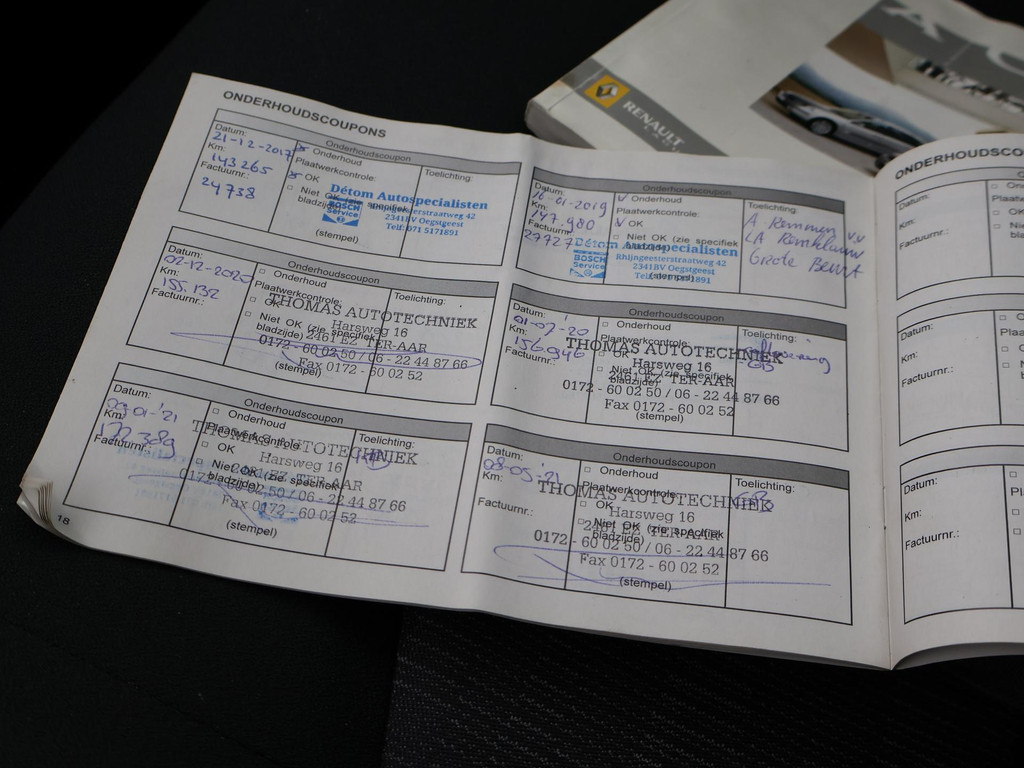 ONDERHOUDSCOUPONS
Onderhoudscoupon
Datum:
21-12-2017
Km:
143265
Factuurnr.:
24738
Onderhoud
Plaatwerkcontrole:
OK
Niet OK (zie specifiek
bladzijde)
Toelichting:
Détom Autospecialisten
BOSCH
Service
Rhijngeesterstraatweg 42
2341BV Oegstgeest
Telf: 071 5171891
(stempel)
Onderhoudscoupon
Datum:
16-01-2019
Km:
147.980
Factuurnr.:
27727
Onderhoud
Plaatwerkcontrole:
OK
Niet OK (zie specifiek
bladzijde)
Toelichting:
A. Remmen v.v
Grote Beurt
Détom Autospecialisten
BOSCH
Service
Rhijngeesterstraatweg 42
2341BV Oegstgeest
(stempel)
Onderhoudscoupon
Datum:
02-12-2020
Km:
155.132
Factuurnr.:
Onderhoud
Plaatwerkcontrole:
OK
Niet OK (zie specifiek
bladzijde)
Toelichting:
THOMAS AUTOTECHNIEK
Harsweg 16
2461 EZ TER-AAR
0172 - 60 02 50 / 06 - 22 44 87 66
Fax 0172 - 60 02 52
(stempel)
Onderhoudscoupon
Datum:
01-07-20
Km:
156.946
Factuurnr.:
Onderhoud
Plaatwerkcontrole:
OK
Niet OK (zie specifiek
bladzijde)
Toelichting:
THOMAS AUTOTECHNIEK
Harsweg 16
2461 EZ TER-AAR
0172 - 60 02 50 / 06 - 22 44 87 66
Fax 0172 - 60 02 52
(stempel)
Onderhoudscoupon
Datum:
Km:
Factuurnr.:
Onderhoud
Plaatwerkcontrole:
OK
Niet OK (zie specifiek
bladzijde)
Toelichting:
THOMAS AUTOTECHNIEK
Harsweg 16
2461 EZ TER-AAR
0172 - 60 02 50 / 06 - 22 44 87 66
Fax 0172 - 60 02 52
(stempel)
18
Onderhoudscoupon
Datum:
08-05-'21
Km:
Factuurnr.:
Onderhoud
Plaatwerkcontrole:
OK
Niet OK (zie specifiek
bladzijde)
Toelichting:
THOMAS AUTOTECHNIEK
Harsweg 16
2461 EZ TER-AAR
0172 - 60 02 50 / 06 - 22 44 87 66
Fax 0172 - 60 02 52
(stempel)
RENAULT
ONDERHOUDSCO
Datum:
Km:
Factuurnr.:
Datum:
Km:
Factuurnr.:
Datum:
Km:
Factuurnr.: